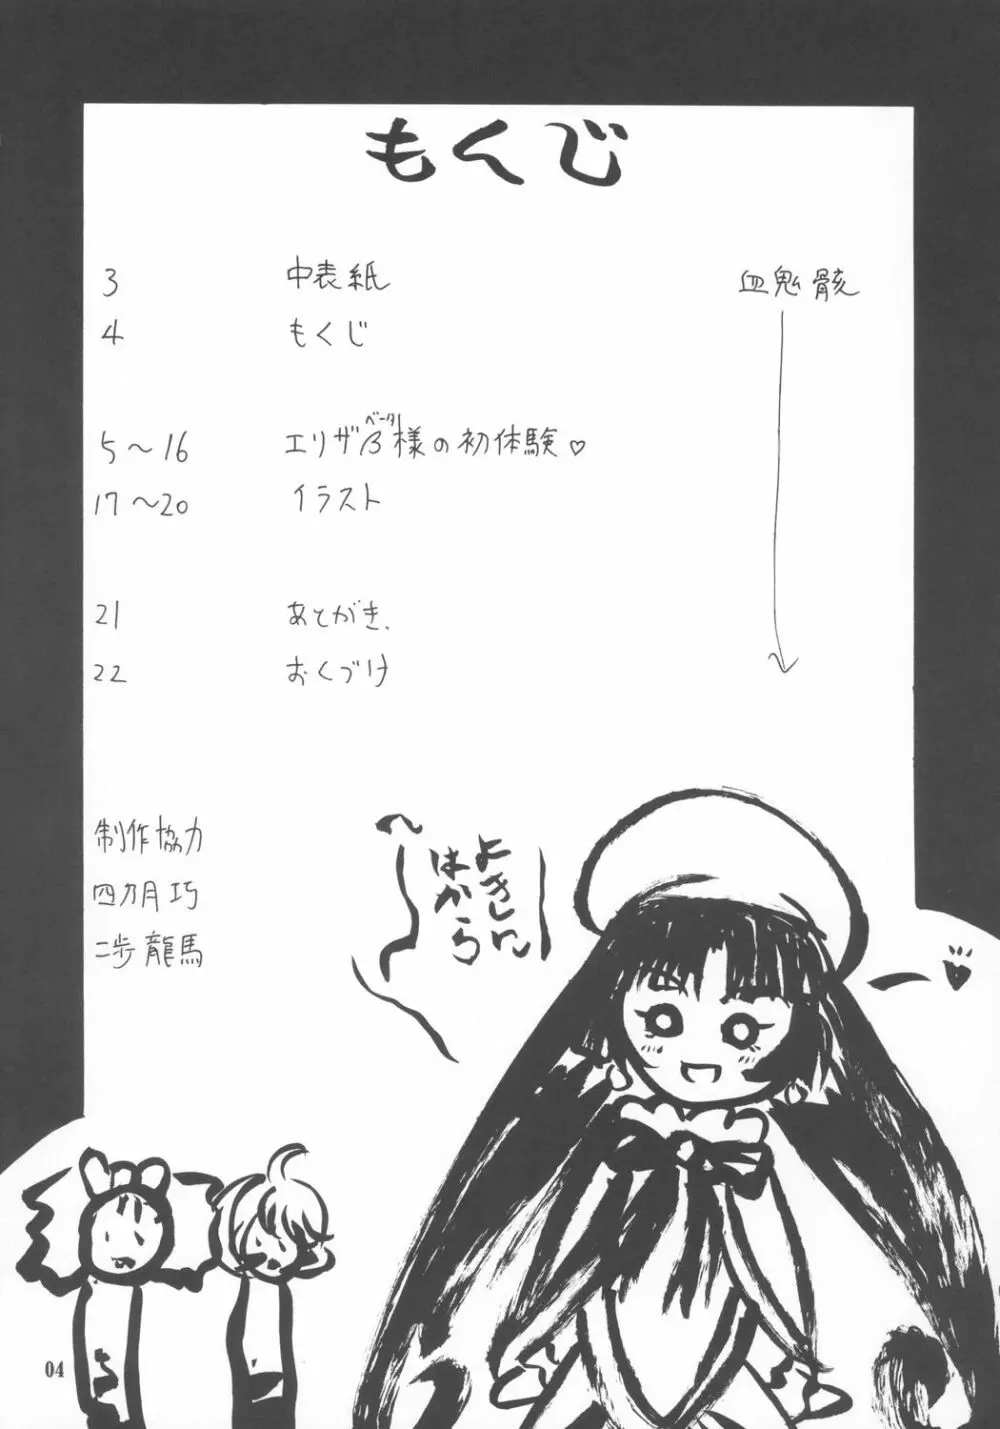 もくじ
3 中表紙 血鬼骸
4 もくじ
5～16 エリザβ様の初体験♡
ベーター
17～20 イラスト
21 あとがき、
22 おくづけ
制作協力
四カ月巧
二歩龍馬
よきに
はからう
04